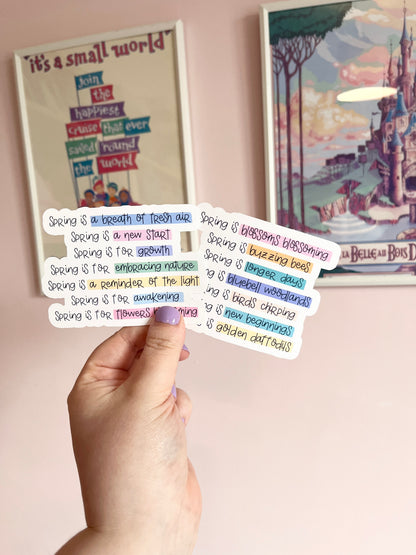 it's a small world
join
the
happiest
cruise that ever
sailed 'round
the world
La Belle au Bois D
Spring is a breath of fresh air
Spring is a new start
Spring is for growth
Spring is for embracing nature
Spring is a reminder of the light
Spring is for awakening
Spring is for flowers
Spring is blossoms blossoming
Spring is buzzing bees
Spring is longer days
Spring is bluebell woodlands
Spring is birds chirping
is new beginnings
is golden daffodils